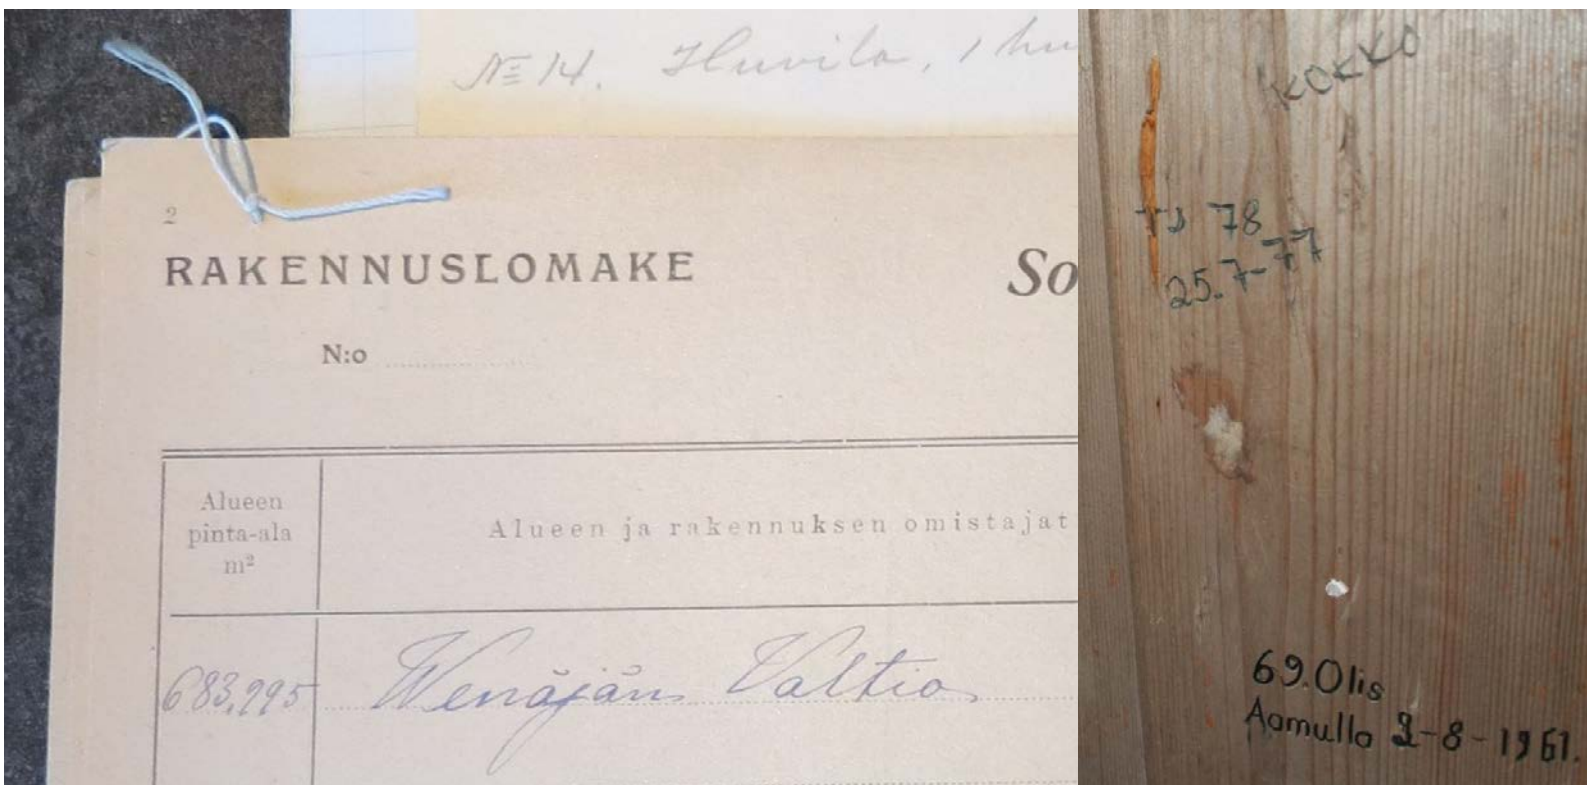 № 14. Huvila, 1 hu
2
RAKENNUSLOMAKE
So
N:o
Alueen
pinta-ala
m²
Alueen ja rakennuksen omistajat
683,995
Wenäjän Valtio
KOKKO
TJ 78
25.7-77
69.Olis
Aamulla 2-8-1961.